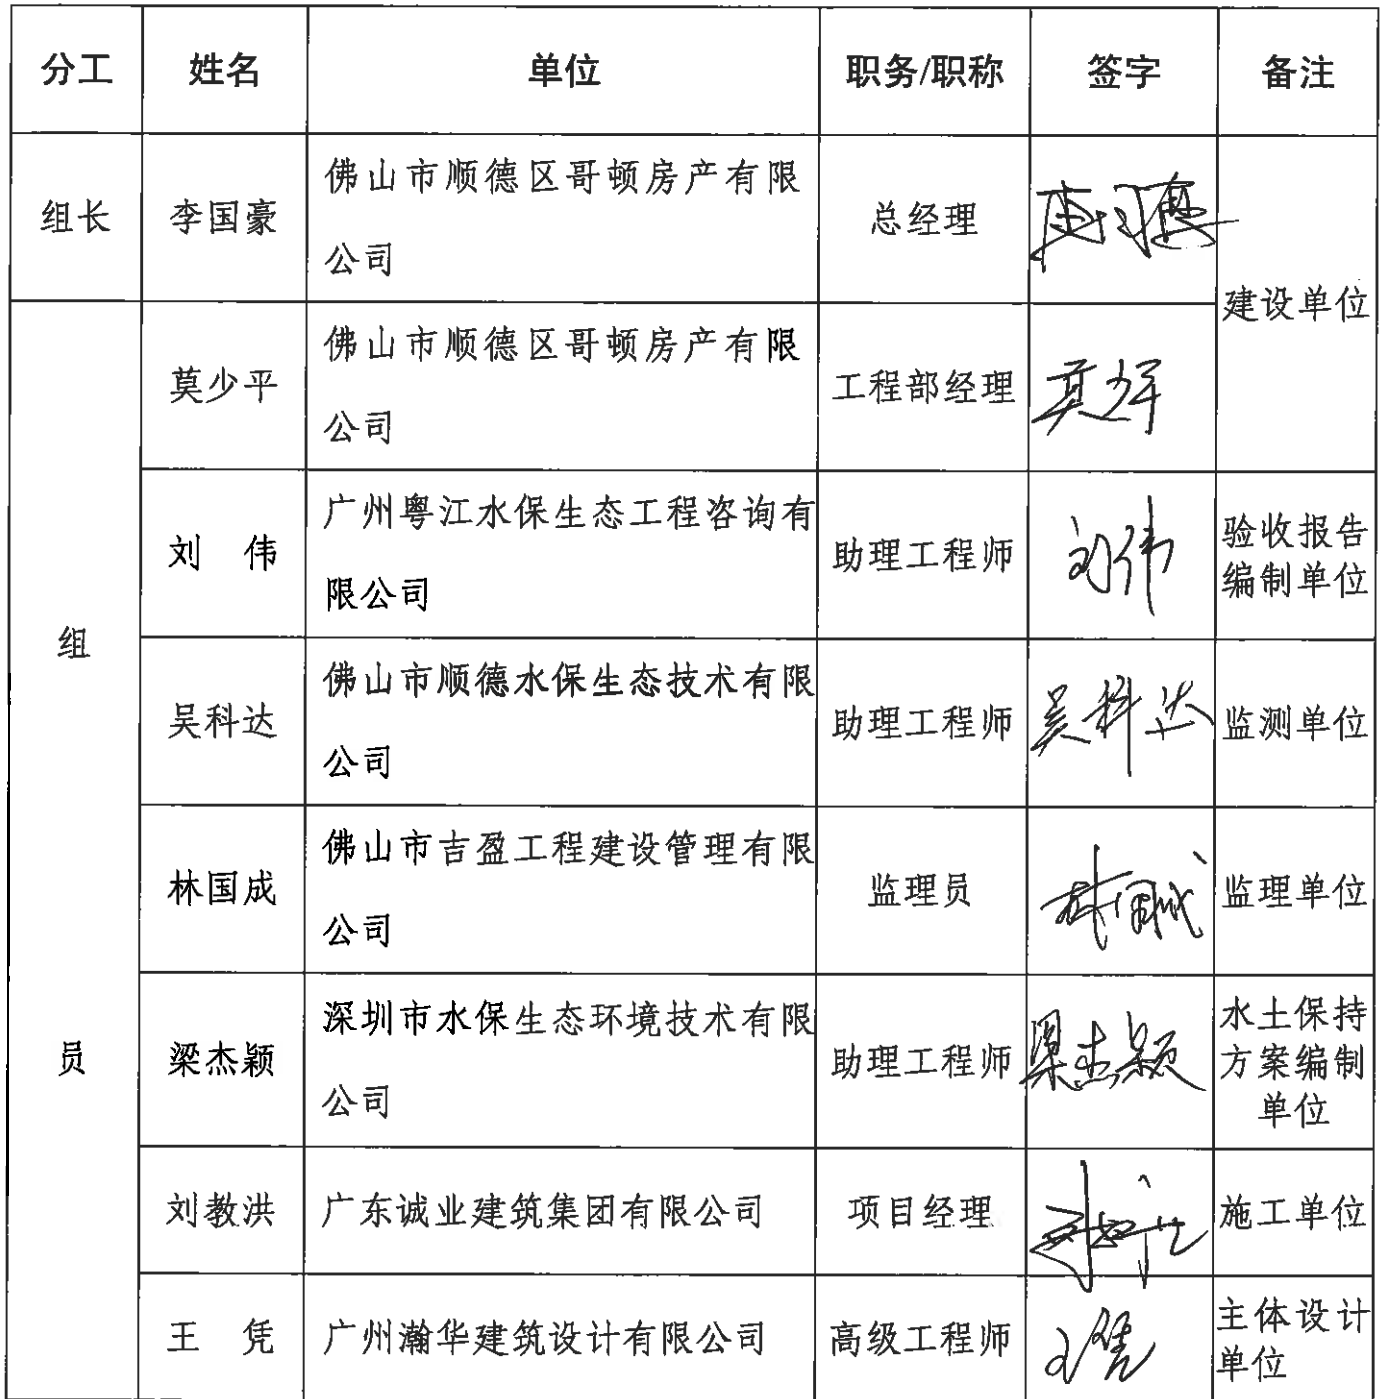 分工 姓名 单位 职务/职称 签字 备注
组长 李国豪 佛山市顺德区哥顿房产有限
公司 总经理
建设单位
莫少平 佛山市顺德区哥顿房产有限
公司 工程部经理 莫少平
刘 伟 广州粤江水保生态工程咨询有
限公司 助理工程师 刘伟 验收报告
编制单位
组
吴科达 佛山市顺德水保生态技术有限
公司 助理工程师 吴科达 监测单位
林国成 佛山市吉盈工程建设管理有限
公司 监理员 林国成 监理单位
员
梁杰颖 深圳市水保生态环境技术有限
公司 助理工程师 梁杰颖 水土保持
方案编制
单位
刘教洪 广东诚业建筑集团有限公司 项目经理 施工单位
王 凭 广州瀚华建筑设计有限公司 高级工程师 王凭 主体设计
单位